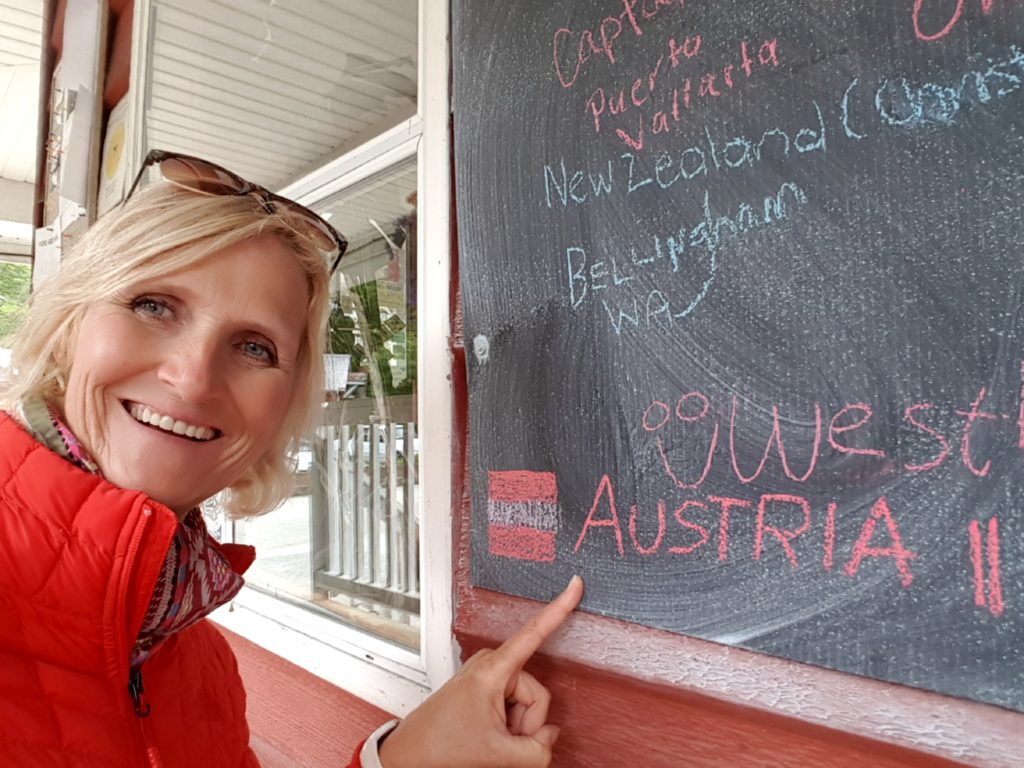 Puerto
Vallarta
New Zealand (Christ
Bellingham
WA
West
AUSTRIA !!